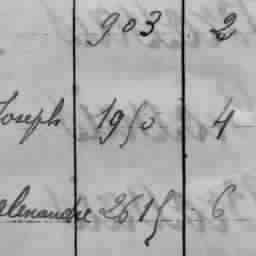 903 2
Joseph 1950 4
alexandre 2615 6